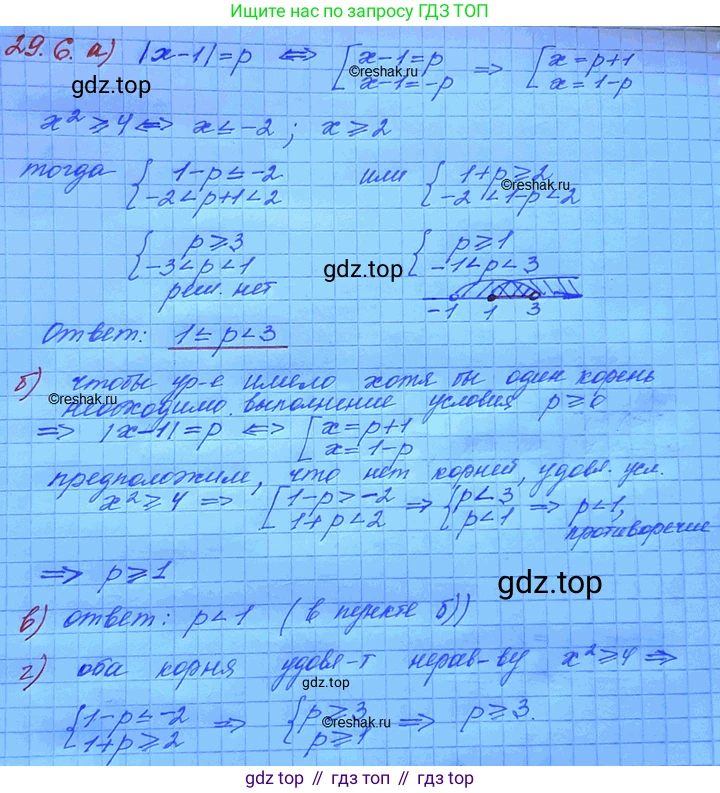 Ищите нас по запросу ГДЗ ТОП
29.6. а) |x-1|=p ⟺ [x-1=p x-1=-p ⇒ [x=p+1 x=1-p
©reshak.ru
gdz.top
x²≥4 ⟺ x≤-2; x≥2
тогда {1-p≤-2 -2<p+1<2 или {1+p≥2 -2<1-p<2
©reshak.ru
{p≥3 -3<p<1 {p≥1 -1<p<3
gdz.top
реш. нет
-1 1 3
Ответ: 1≤p<3
б) чтобы ур-е имело хотя бы один корень
©reshak.ru
необходимо выполнение условия p≥0
⇒ |x-1|=p ⟺ [x=p+1 x=1-p
предположим, что нет корней, удовл. усл.
x²≥4 ⇒ [1-p>-2 1+p<2 ⇒ {p<3 p<1 ⇒ p<1,
противоречие
⇒ p≥1
gdz.top
в) ответ: p<1 (в пункте б))
г) оба корня удовл-т нерав-ву x²≥4 ⇒
gdz.top
{1-p≤-2 1+p≥2 ⇒ {p≥3 p≥1 ⇒ p≥3.
©reshak.ru
gdz.top // гдз топ // gdz.top